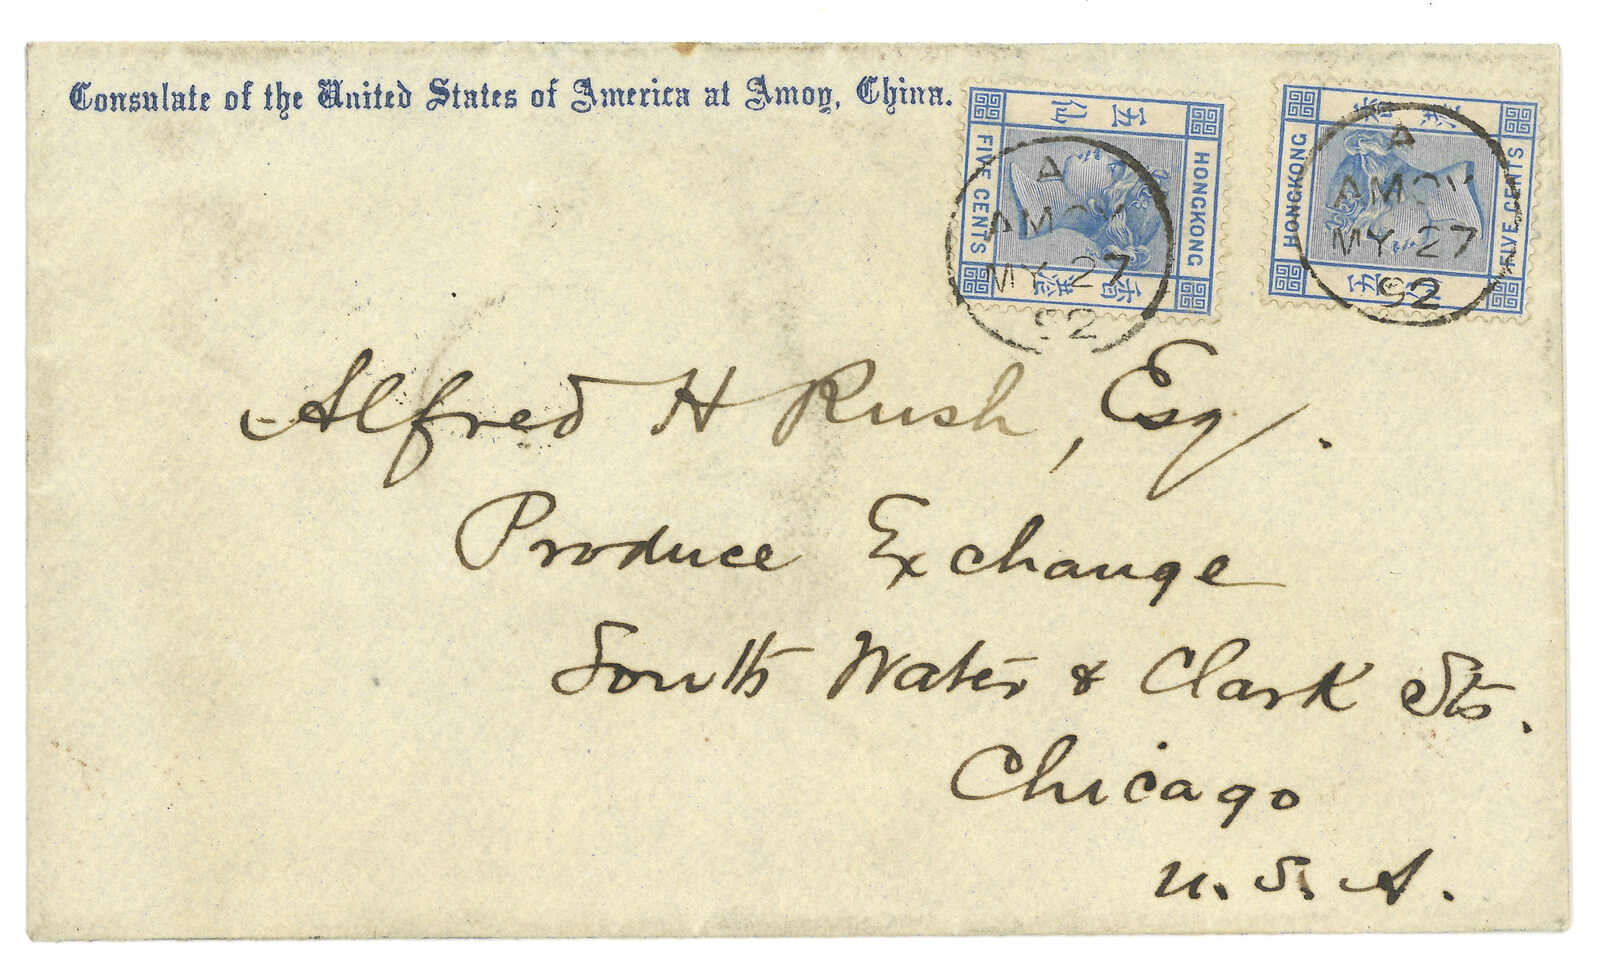 Consulate of the United States of America at Amoy, China.
五仙
FIVE CENTS
HONGKONG
香港
A
AMOY
MY 27
92
香港
HONGKONG
FIVE CENTS
五仙
A
AMOY
MY 27
92
Alfred H Rush, Esq.
Produce Exchange
South Water & Clark Sts.
Chicago
U. S. A.